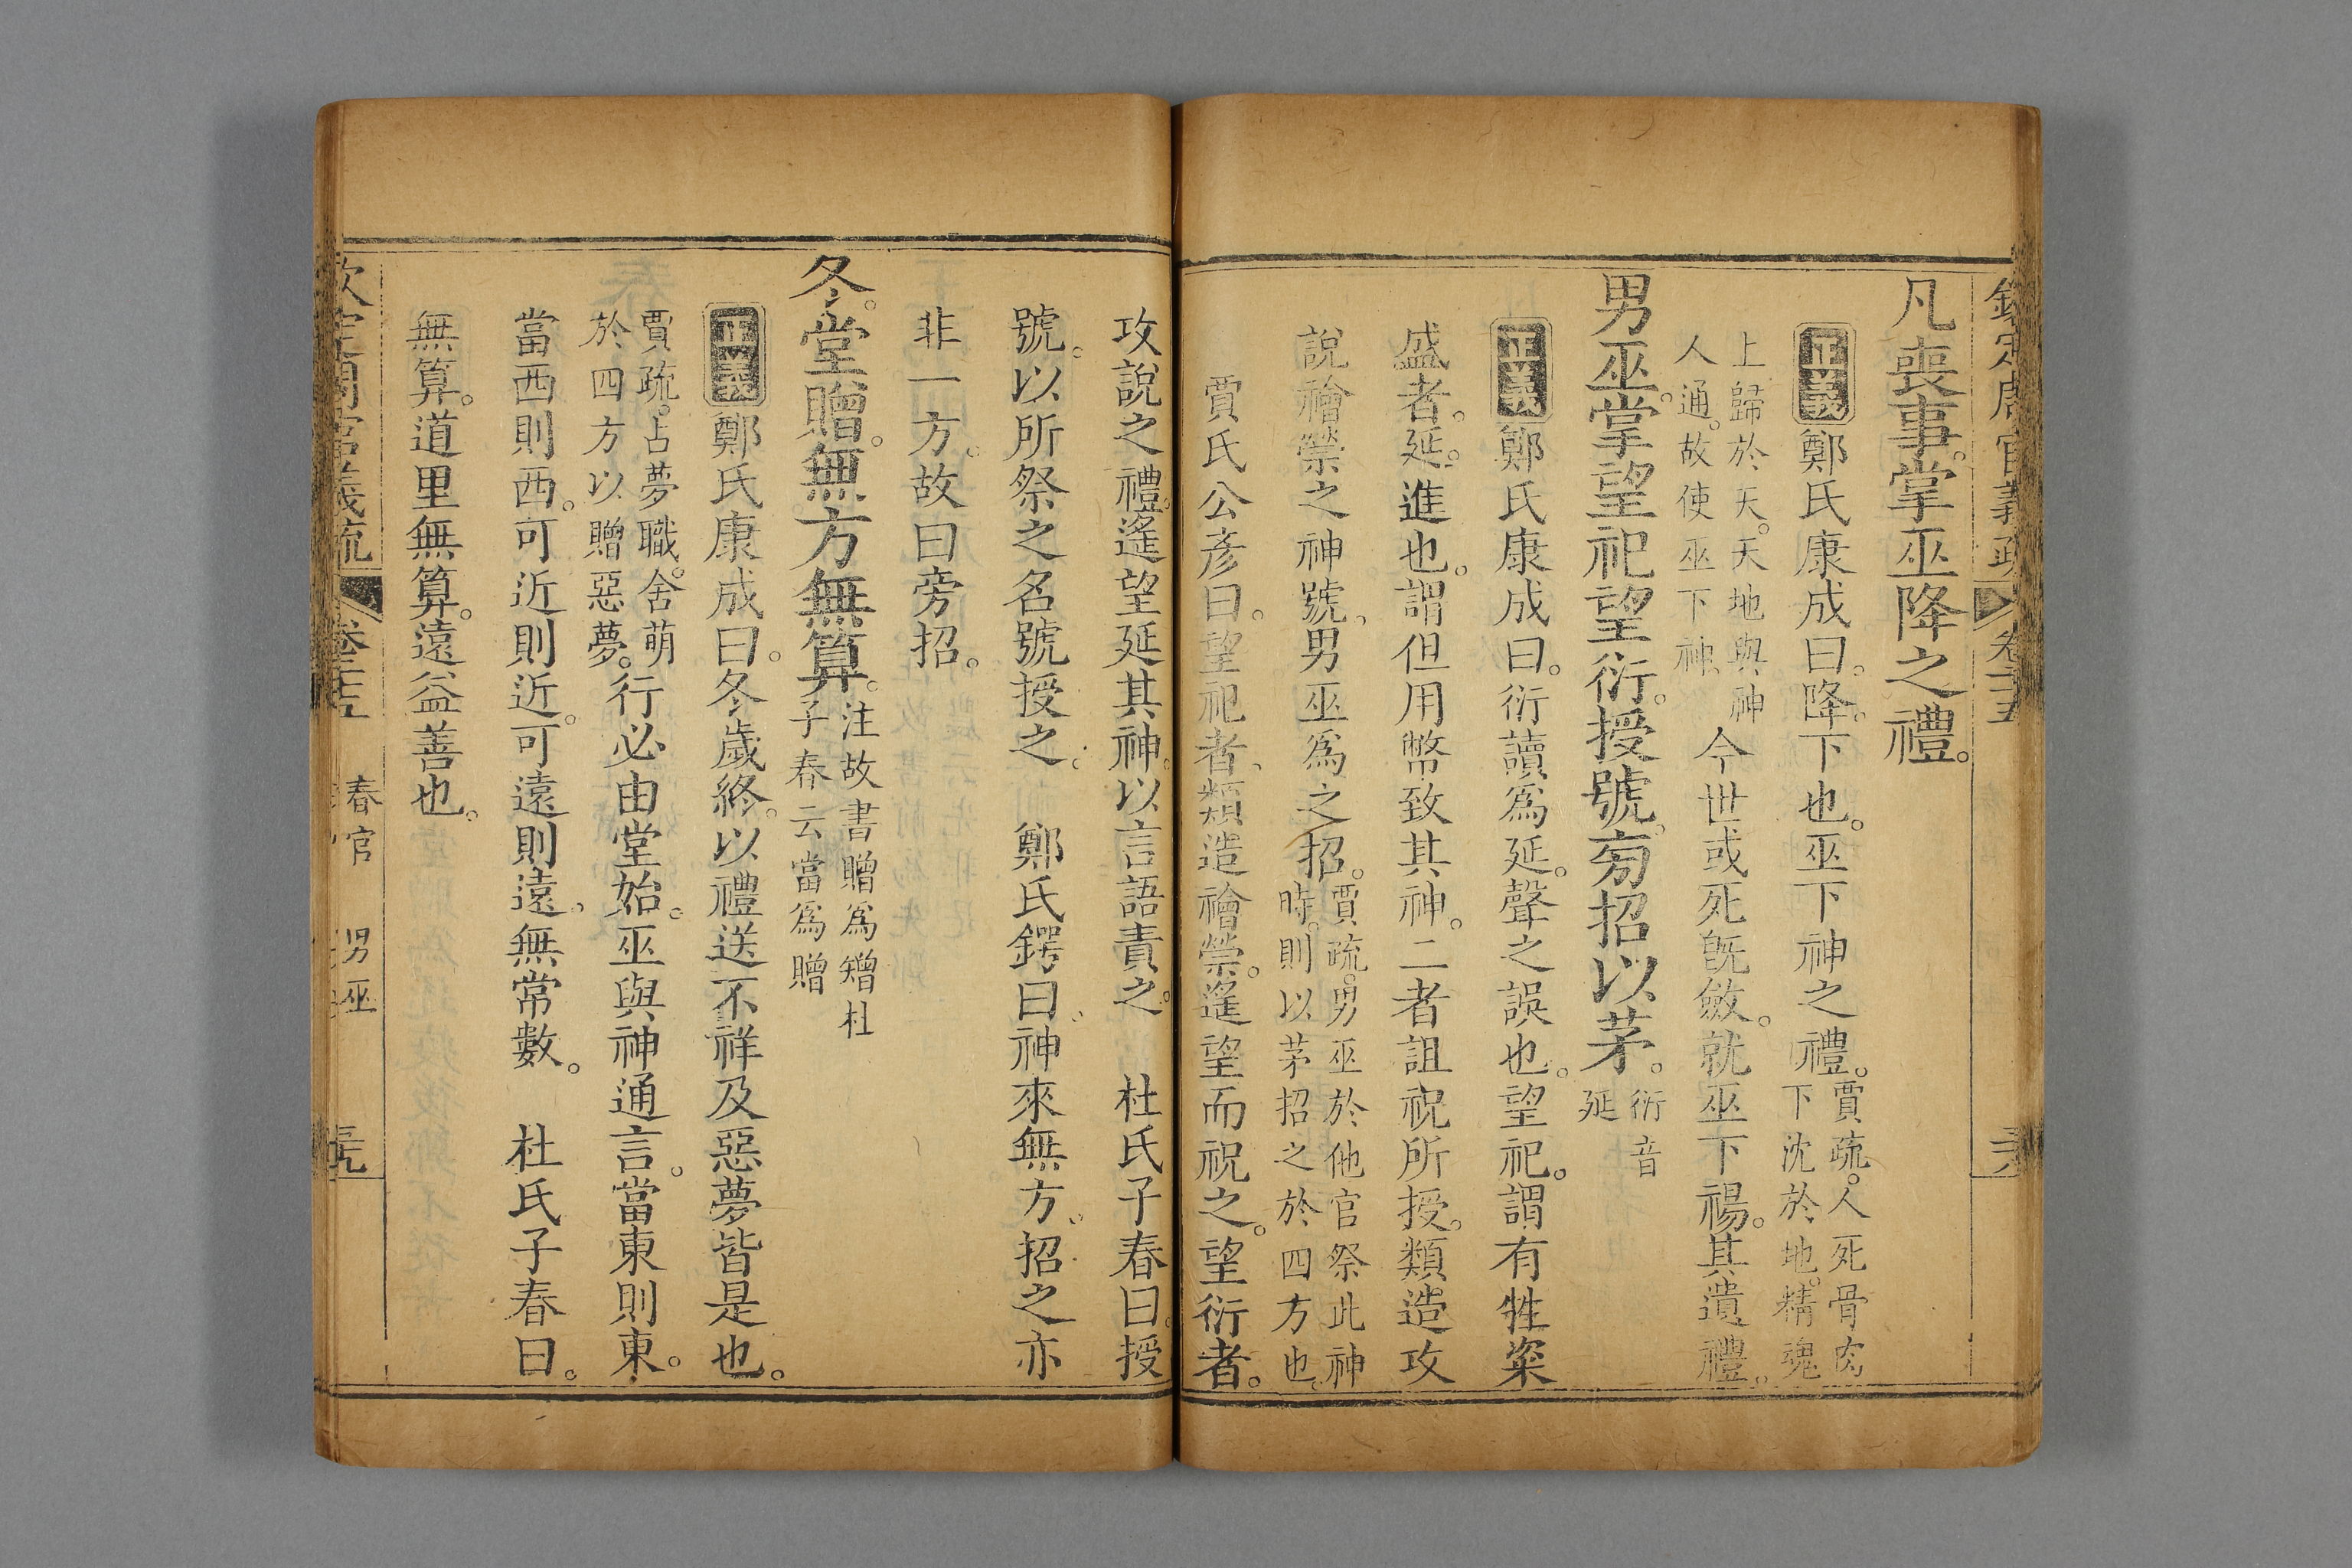 欽定周官義疏 卷二十五
凡喪事。掌巫降之禮。
正義 鄭氏康成曰。降。下也。巫下神之禮。賈疏。人死骨肉下沈於地。精魂
上歸於天。天地與神人通。故使巫下神。今世或死旣斂。就巫下禓。其遺禮。
男巫。掌望祀望衍。授號。旁招以茅。衍音延
正義 鄭氏康成曰。衍讀爲延。聲之誤也。望祀。謂有牲粢
盛者。延。進也。謂但用幣致其神。二者詛祝所授。類造攻
說禬禜之神號。男巫爲之招。賈疏。男巫於他官祭此神時。則以茅招之於四方也。
賈氏公彥曰。望祀者。類造禬禜。遙望而祝之。望衍者。
攻說之禮。遙望延其神。以言語責之。 杜氏子春曰。授
號。以所祭之名號授之。 鄭氏鍔曰。神來無方。招之亦
非一方。故曰旁招。
冬。堂贈。無方無算。注故書贈爲矰杜子春云當爲贈
正義 鄭氏康成曰。冬歲終。以禮送不祥及惡夢皆是也。
賈疏。占夢職。舍萌於四方以贈惡夢。行必由堂始。巫與神通言。當東則東。
當西則西。可近則近。可遠則遠。無常數。 杜氏子春曰。
無算。道里無算。遠益善也。
欽定周官義疏 卷二十五 春官 男巫